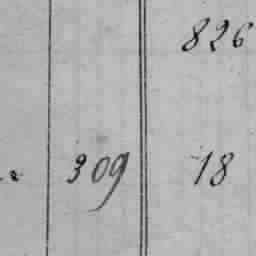 826
309 18